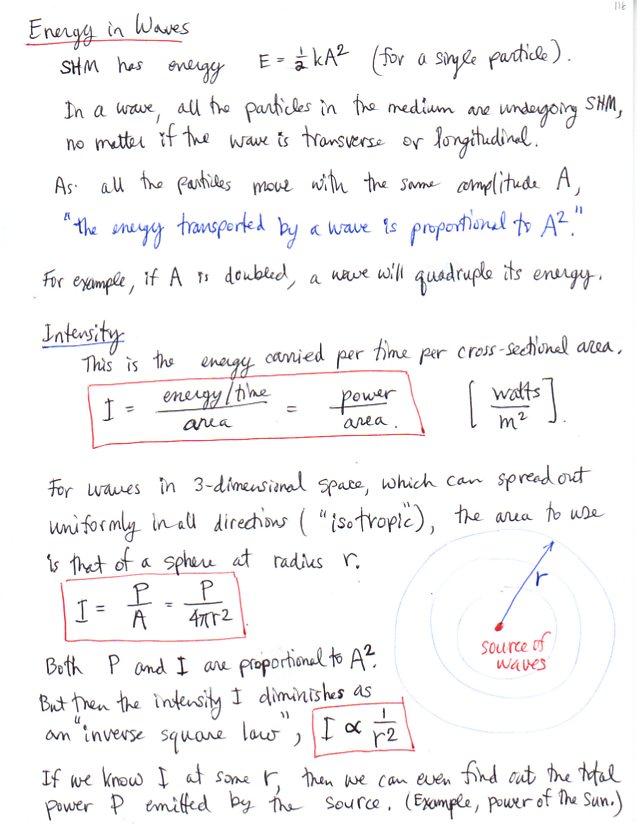 118
Energy in Waves
SHM has energy E = ½kA² (for a single particle).
In a wave, all the particles in the medium are undergoing SHM,
no matter if the wave is transverse or longitudinal.
As all the particles move with the same amplitude A,
"the energy transported by a wave is proportional to A²."
For example, if A is doubled, a wave will quadruple its energy.
Intensity
This is the energy carried per time per cross-sectional area.
I = energy/time / area = power / area. [watts / m²].
For waves in 3-dimensional space, which can spread out
uniformly in all directions ("isotropic"), the area to use
is that of a sphere at radius r.
I = P/A = P/4πr²
r
source of
waves
Both P and I are proportional to A².
But then the intensity I diminishes as
an "inverse square law", I ∝ 1/r²
If we know I at some r, then we can even find out the total
power P emitted by the source. (Example, power of the Sun.)